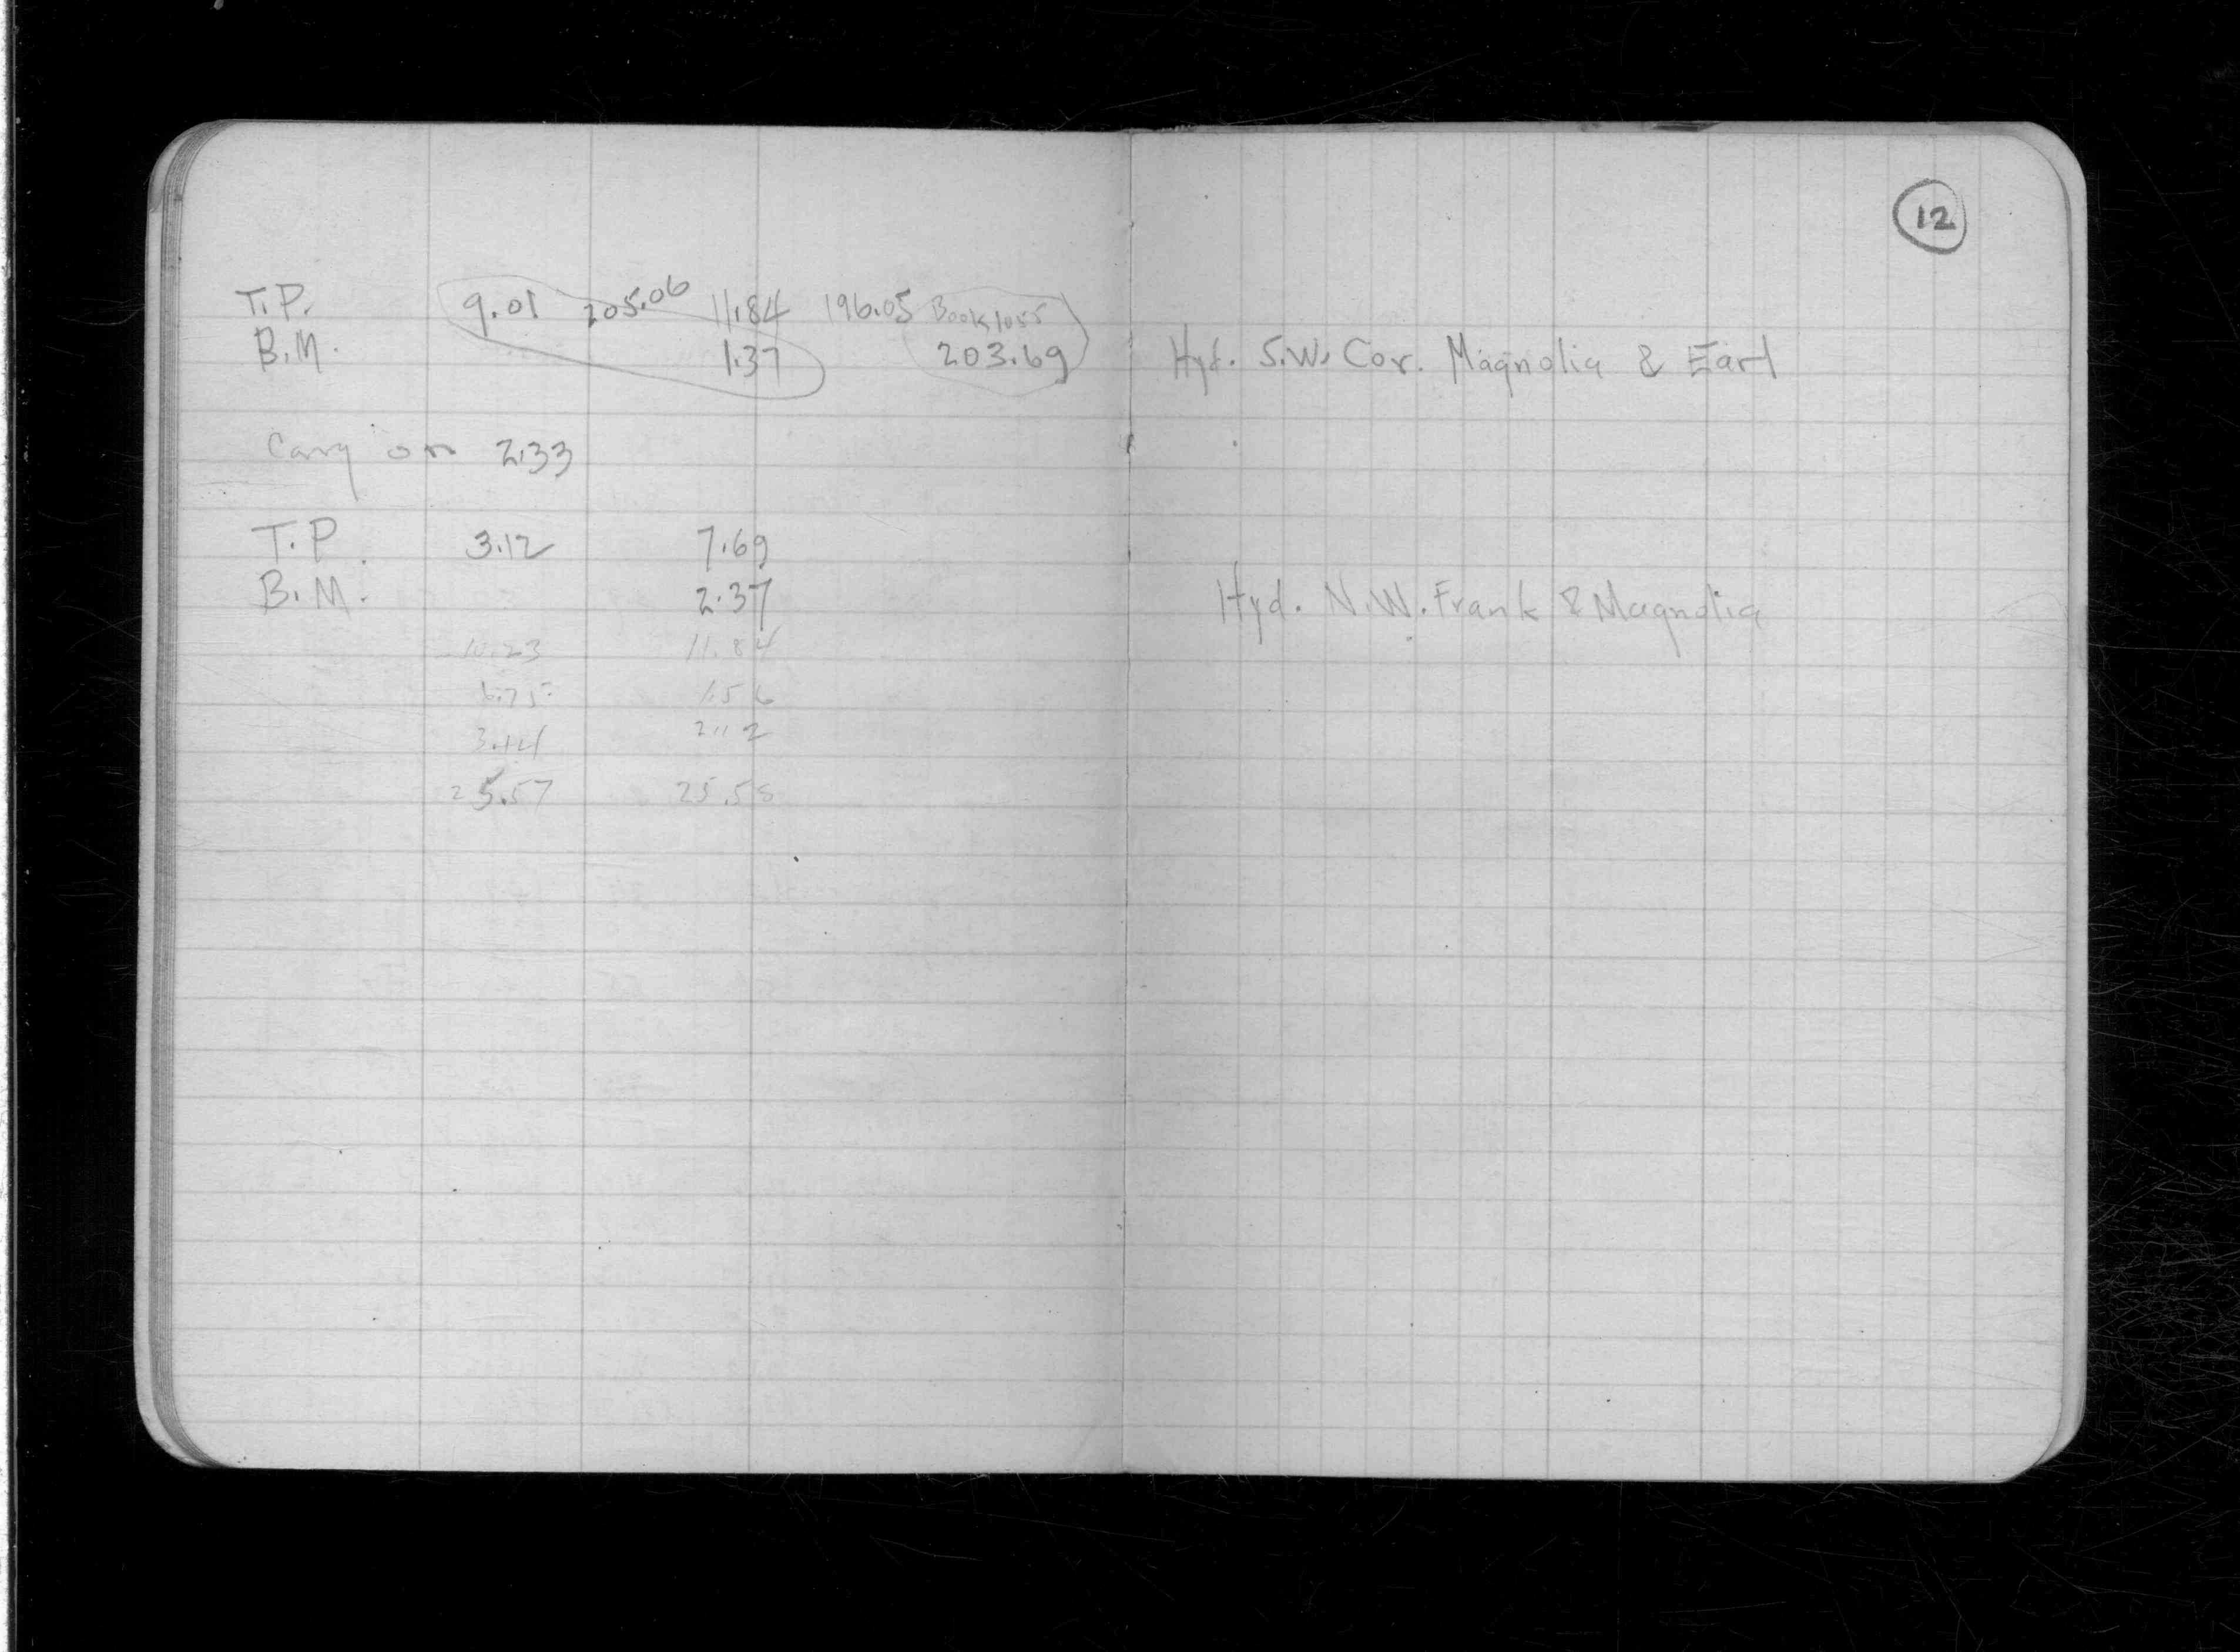 12
T.P. 9.01 205.06 11.84 196.05 Book 1055
B.M. 1.37 203.69 Hyd. S.W. Cor. Magnolia & Earl
Carry on 2.33
T.P. 3.12 7.69
B.M. 2.37 Hyd. N.W. Frank & Magnolia
10.23 11.84
6.75 1.56
3.14 2.12
25.57 25.58